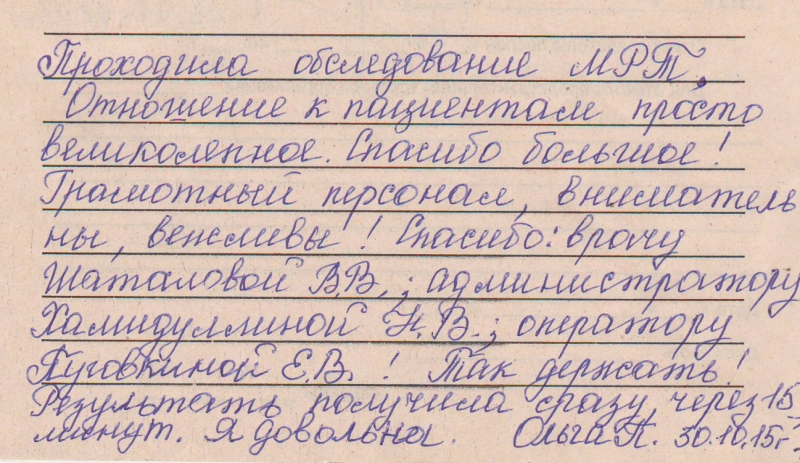 Проходила обследование МРТ.
Отношение к пациентам просто
великолепное. Спасибо большое!
Грамотный персонал, вниматель
ны, вежливы! Спасибо: врачу
Шаталовой В.В.; администратору
Хамидуллиной Н.В.; оператору
Пуговкиной Е.В.! Так держать!
Результать получила сразу, через 15
минут. Я довольна. Ольга П. 30.10.15г.